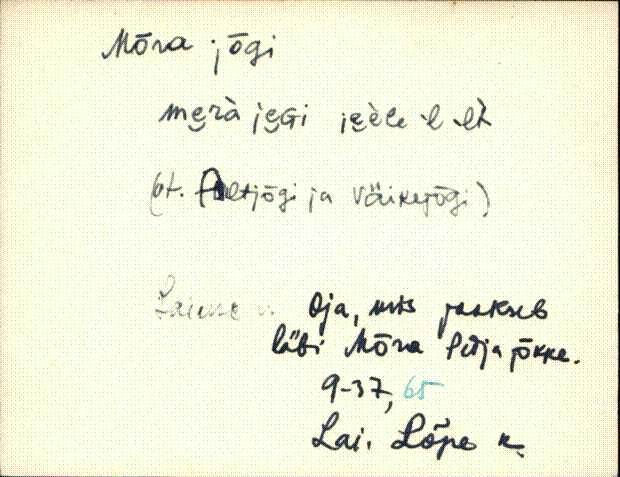 Mõra jõgi
me̮rà je̮Gi je̮è
(vt. Altjõgi ja Väikejõgi)
Oja, mis jookseb
läbi Mõra Pedja jõkke.
9-37, 65
Lai. Lõpe k.